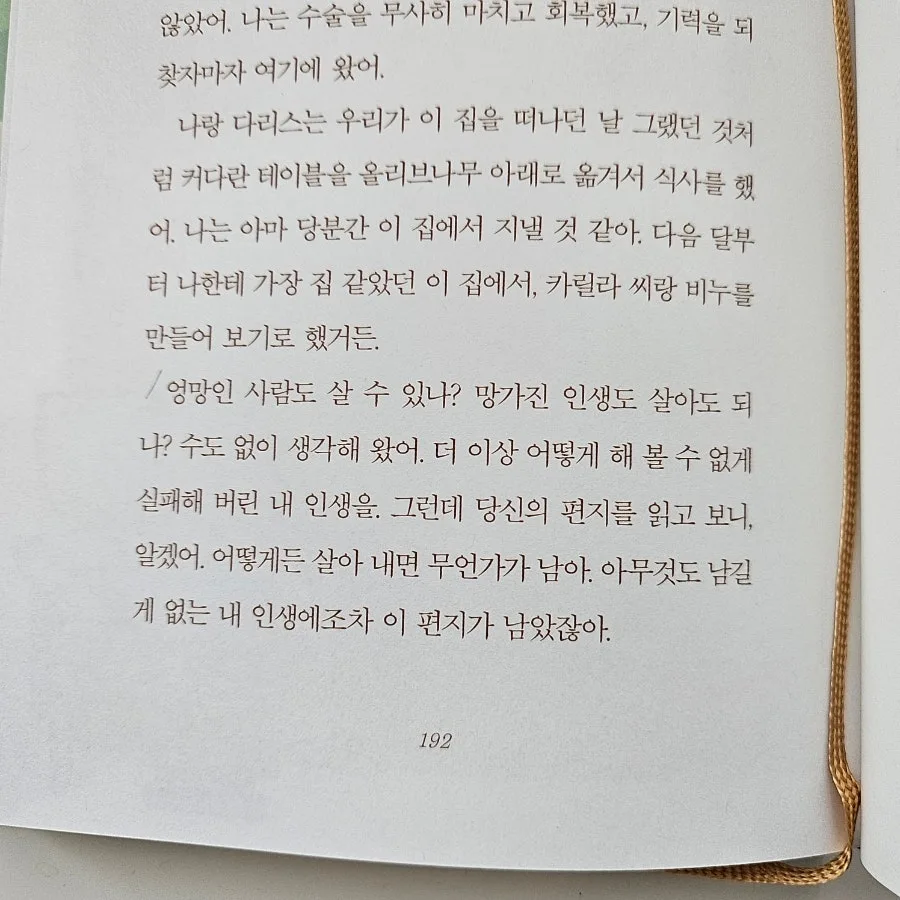 않았어. 나는 수술을 무사히 마치고 회복했고, 기력을 되
찾자마자 여기에 왔어.
나랑 다리스는 우리가 이 집을 떠나던 날 그랬던 것처
럼 커다란 테이블을 올리브나무 아래로 옮겨서 식사를 했
어. 나는 아마 당분간 이 집에서 지낼 것 같아. 다음 달부
터 나한테 가장 집 같았던 이 집에서, 카릴라 씨랑 비누를
만들어 보기로 했거든.
엉망인 사람도 살 수 있나? 망가진 인생도 살아도 되
나? 수도 없이 생각해 왔어. 더 이상 어떻게 해 볼 수 없게
실패해 버린 내 인생을. 그런데 당신의 편지를 읽고 보니,
알겠어. 어떻게든 살아 내면 무언가가 남아. 아무것도 남길
게 없는 내 인생에조차 이 편지가 남았잖아.
192